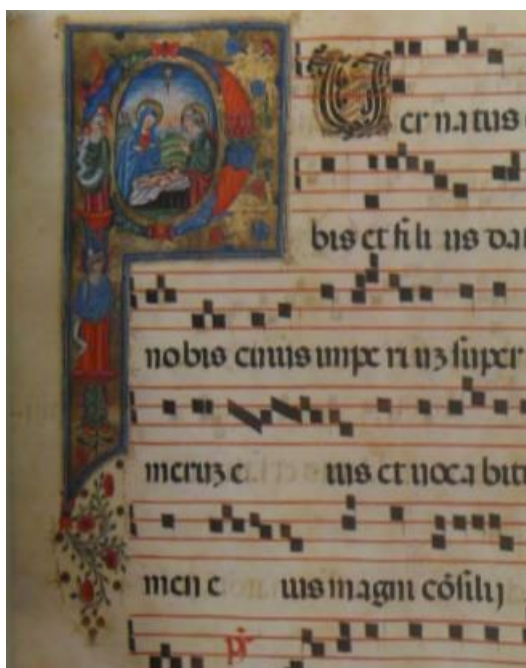 PU er natus
bis et fili us dat
nobis cuius impe riuz super
meruz e ius et uocabit
men e ius magni cōsilij